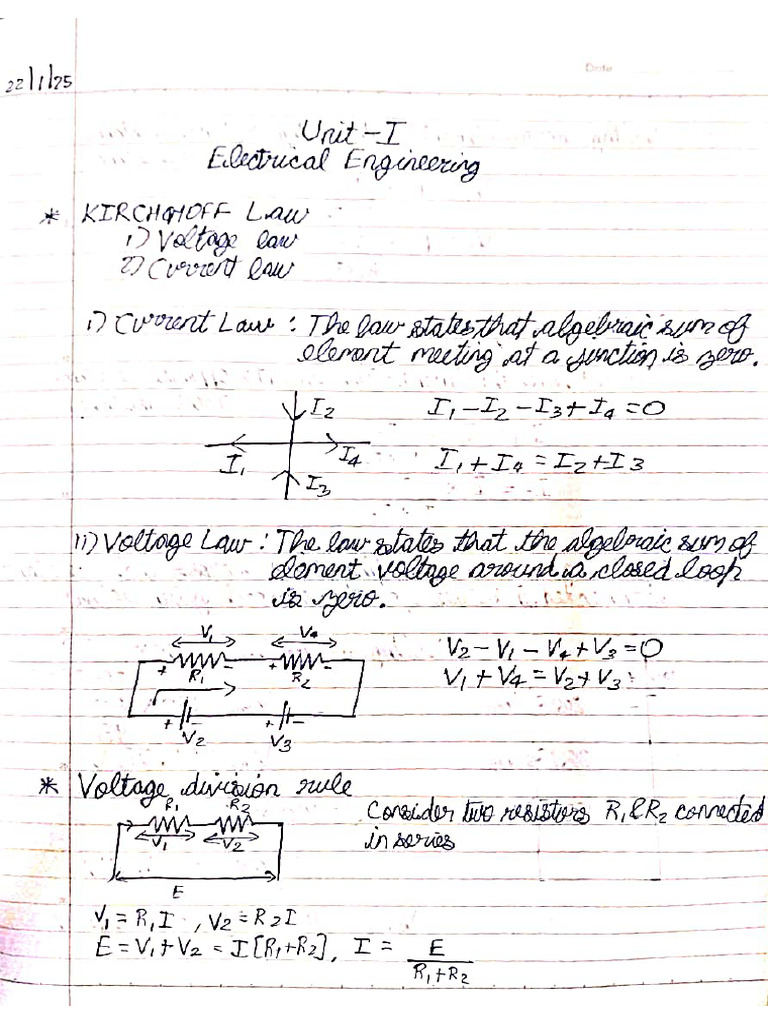 Date
22/1/25
Unit-I
Electrical Engineering
* KIRCHHOFF Law
1) Voltage law
2) Current law
i) Current Law : The law states that algebraic sum of
element meeting at a junction is zero.
I2
I1 - I2 - I3 + I4 = 0
I1
I4
I1 + I4 = I2 + I3
I3
ii) Voltage Law : The law states that the algebraic sum of
element voltage around a closed loop
is zero.
V1 V4
V2 - V1 - V4 + V3 = 0
+ R1 - + R2 -
V1 + V4 = V2 + V3
+ - + -
V2 V3
* Voltage division rule
R1 R2
Consider two resistors R1 & R2 connected
V1 V2
in series
E
V1 = R1 I , V2 = R2 I
E = V1 + V2 = I [R1+R2], I = E
R1+R2